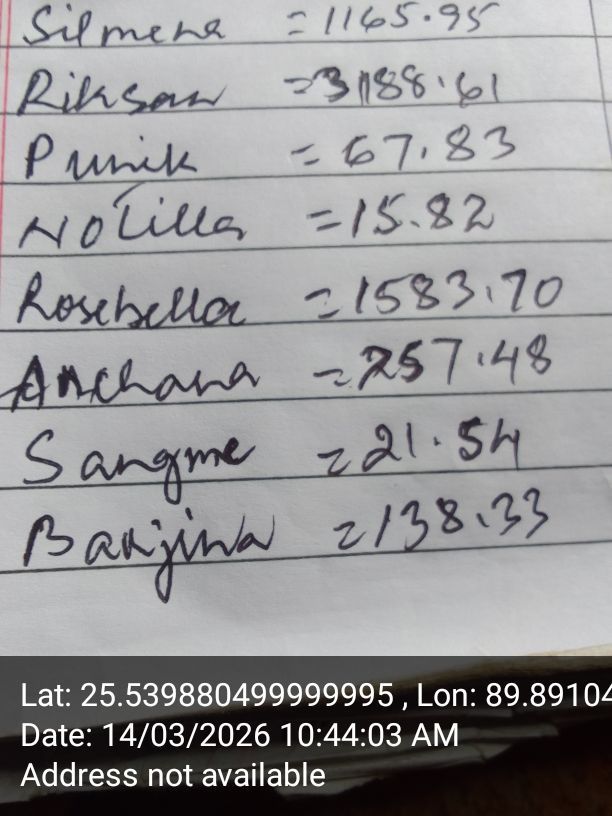 Silmena = 1165.95
Riksan = 3188.61
Punik = 67.83
Notilla = 15.82
Rosebella = 1583.70
Anchana = 257.48
Sangme = 21.54
Banjina = 138.33
Lat: 25.539880499999995 , Lon: 89.89104
Date: 14/03/2026 10:44:03 AM
Address not available